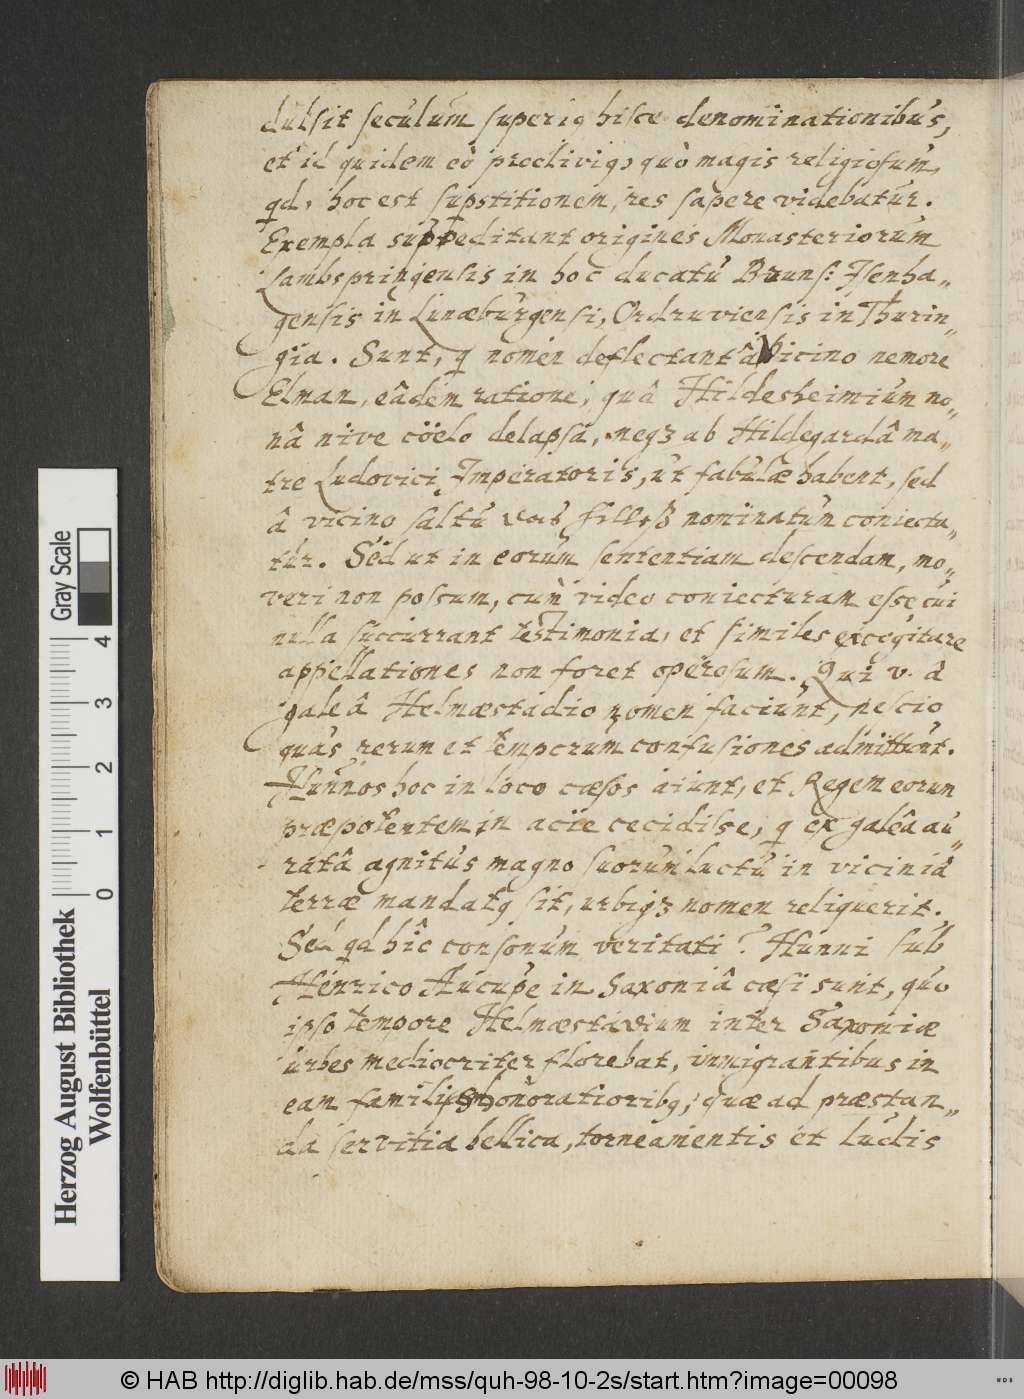 dulsit seculum superiq hisce denominationibus,
et id quidem eò proclivig, quò magis religiosum,
qd, hoc est supstitionem, res sapere videbatur.
Exempla suppeditant origines Monasteriorum
Lambspringensis in hoc ducatu Bruns: Isenha„
gensis in Lunæburgensi, Ordruviensis in Thurin„
gia. Sunt, q nomen deflectant â vicino nemore
Elman, eâdem ratione, quâ Hildesheimium no„
nâ nive cöelo delapsâ, neqꝫ ab Hildegardâ ma„
tre Ludovici Imperatoris, ut fabulæ habent, sed
â vicino saltu nominatum coniecta„
tur. Sed ut in eorum sententiam descendam, mo„
veri non possum, cum video coniecturam esse cui
nulla succurrant testimonia, et similes excogitare
appellationes non foret operosum. Qui v. â
galeâ Helmæstadio nomen faciunt, nescio
quas rerum et temporum confusiones admittunt.
Hunnos hoc in loco cæsos aiunt, et Regem eorum
præpotentem in acie cecidisse, q ex galeâ au„
ratâ agnitus magno suorum luctu in viciniâ
terræ mandatq sit, urbiqꝫ nomen reliquerit.
Sed qd hîc consonum veritati? Hunni sub
Henrico Aucupe in Saxoniâ cæsi sunt, quo
ipso tempore Helmæstadium inter Saxoniæ
urbes mediocriter florebat, inmigrantibus in
eam familijs honoratioribq, quæ ad præstan„
da servitia bellica, torneamentis et ludis
Gray Scale
0 1 2 3 4
Herzog August Bibliothek
Wolfenbüttel
© HAB http://diglib.hab.de/mss/quh-98-10-2s/start.htm?image=00098